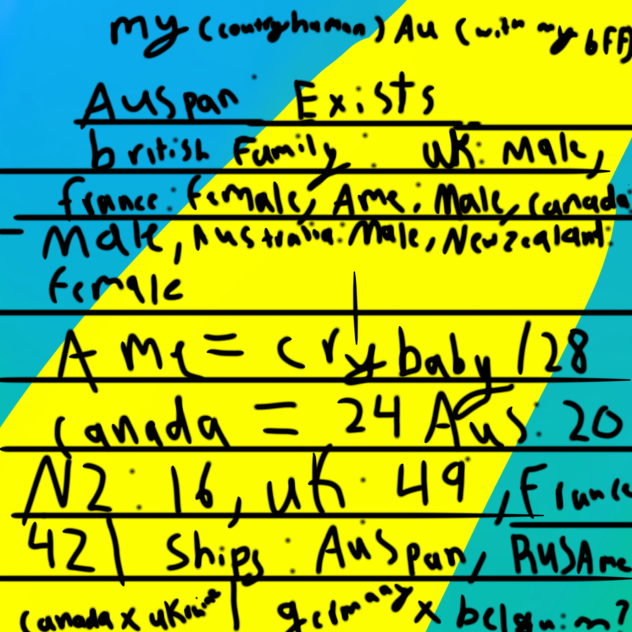 my (countryhuman) Au (with my bff)
Auspan Exists
british Family: UK: Male,
france: female, Ame: Male, Canada:
Male, Australia: Male, Newzealand:
female
Ame = crybaby / 28
Canada = 24 Aus: 20
NZ: 16, UK: 49, France
42 | Ships: Auspan, RUSAme
Canada x ukraine | germany x belguim?